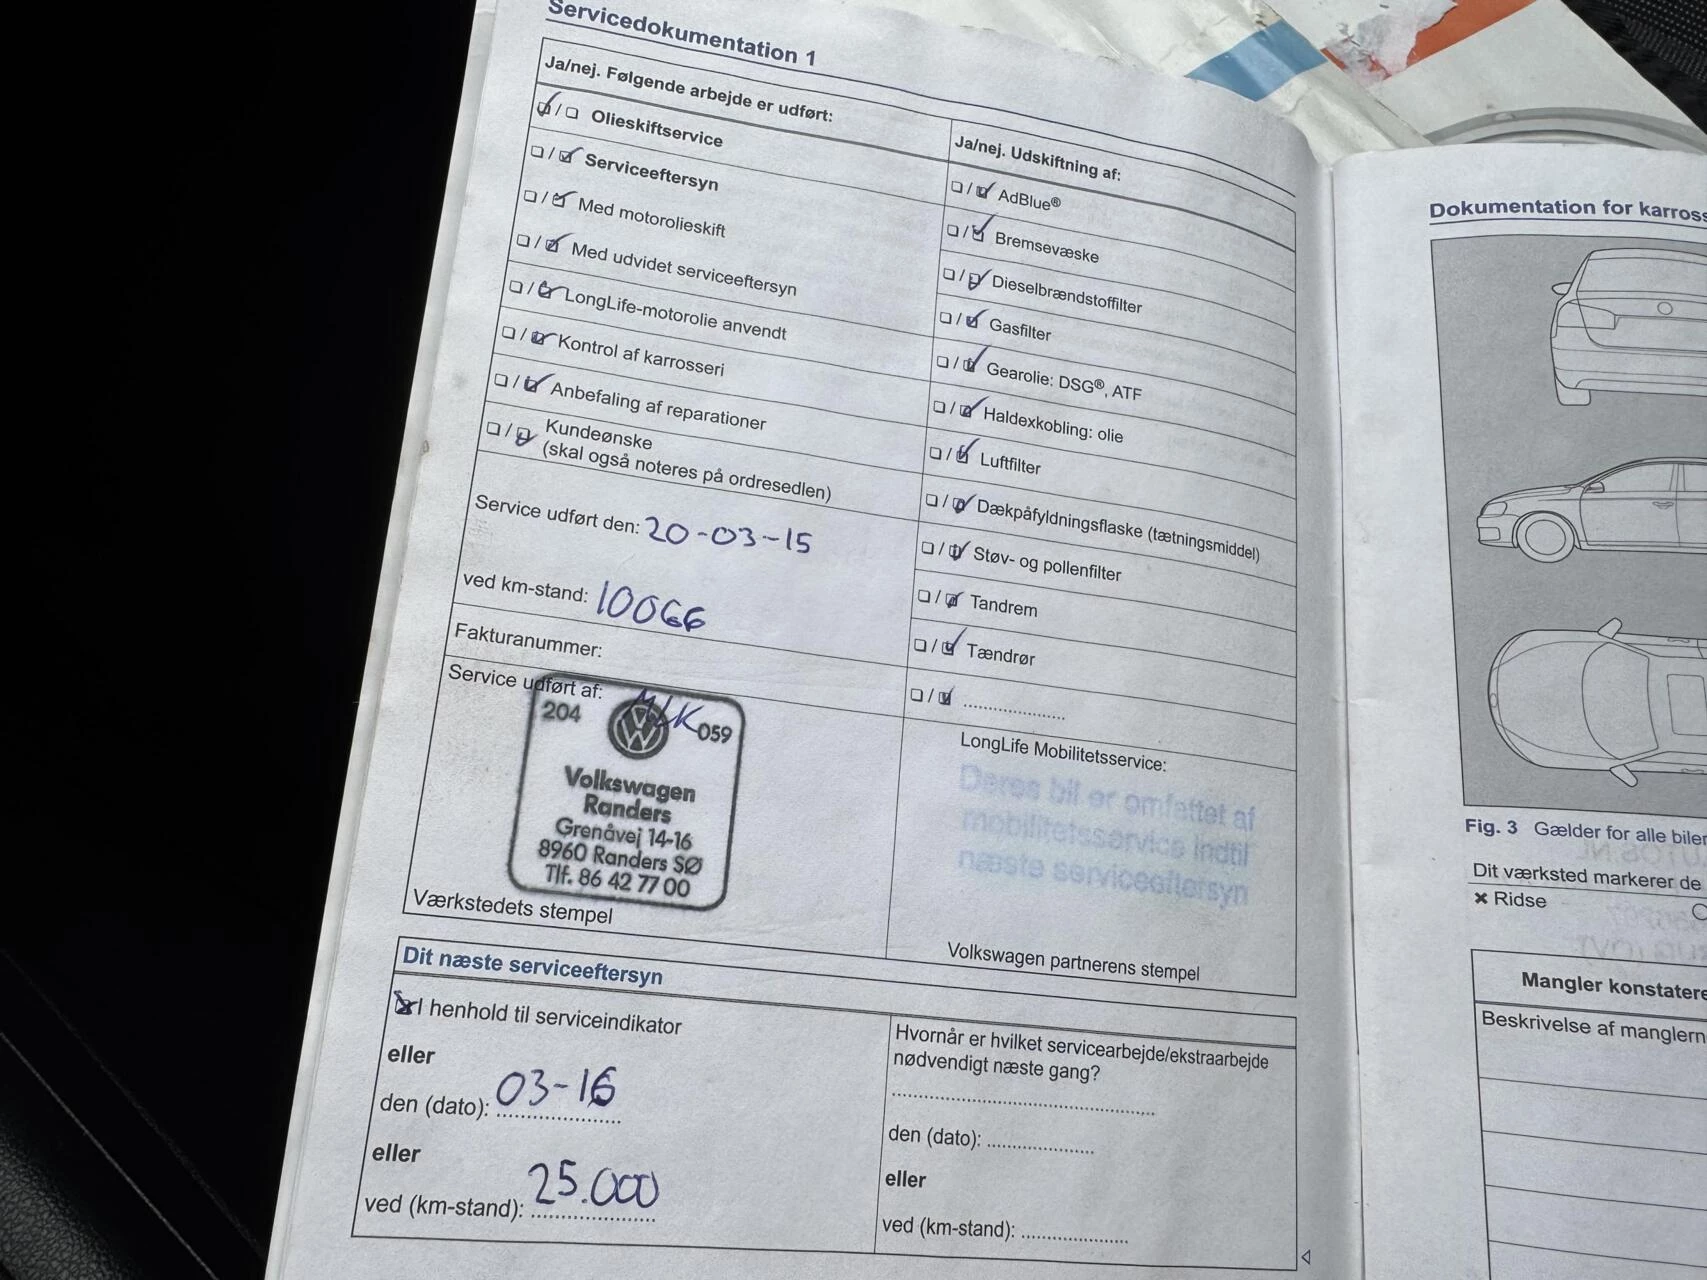 Servicedokumentation 1
Ja/nej. Følgende arbejde er udført:
❏ / ❏ Olieskiftservice
❏ / ❏ Serviceeftersyn
❏ / ❏ Med motorolieskift
❏ / ❏ Med udvidet serviceeftersyn
❏ / ❏ LongLife-motorolie anvendt
❏ / ❏ Kontrol af karrosseri
❏ / ❏ Anbefaling af reparationer
❏ / ❏ Kundeønske
(skal også noteres på ordresedlen)
Service udført den: 20-03-15
ved km-stand: 10066
Fakturanummer:
Service udført af:
204
059
Volkswagen
Randers
Grenåvej 14-16
8960 Randers SØ
Tlf. 86 42 77 00
Værkstedets stempel
Ja/nej. Udskiftning af:
❏ / ❏ AdBlue®
❏ / ❏ Bremsevæske
❏ / ❏ Dieselbrændstoffilter
❏ / ❏ Gasfilter
❏ / ❏ Gearolie: DSG®, ATF
❏ / ❏ Haldexkobling: olie
❏ / ❏ Luftfilter
❏ / ❏ Dækpåfyldningsflaske (tætningsmiddel)
❏ / ❏ Støv- og pollenfilter
❏ / ❏ Tandrem
❏ / ❏ Tændrør
❏ / ❏ ....................
LongLife Mobilitetsservice:
Deres bil er omfattet af
mobilitetsservice indtil
næste serviceeftersyn
Volkswagen partnerens stempel
Dit næste serviceeftersyn
I henhold til serviceindikator
eller
den (dato): 03-16
eller
ved (km-stand): 25.000
Hvornår er hvilket servicearbejde/ekstraarbejde
nødvendigt næste gang?
den (dato): ....................
eller
ved (km-stand): ....................
Dokumentation for karross
Fig. 3 Gælder for alle biler
Dit værksted markerer de
✖ Ridse
Mangler konstatere
Beskrivelse af manglern